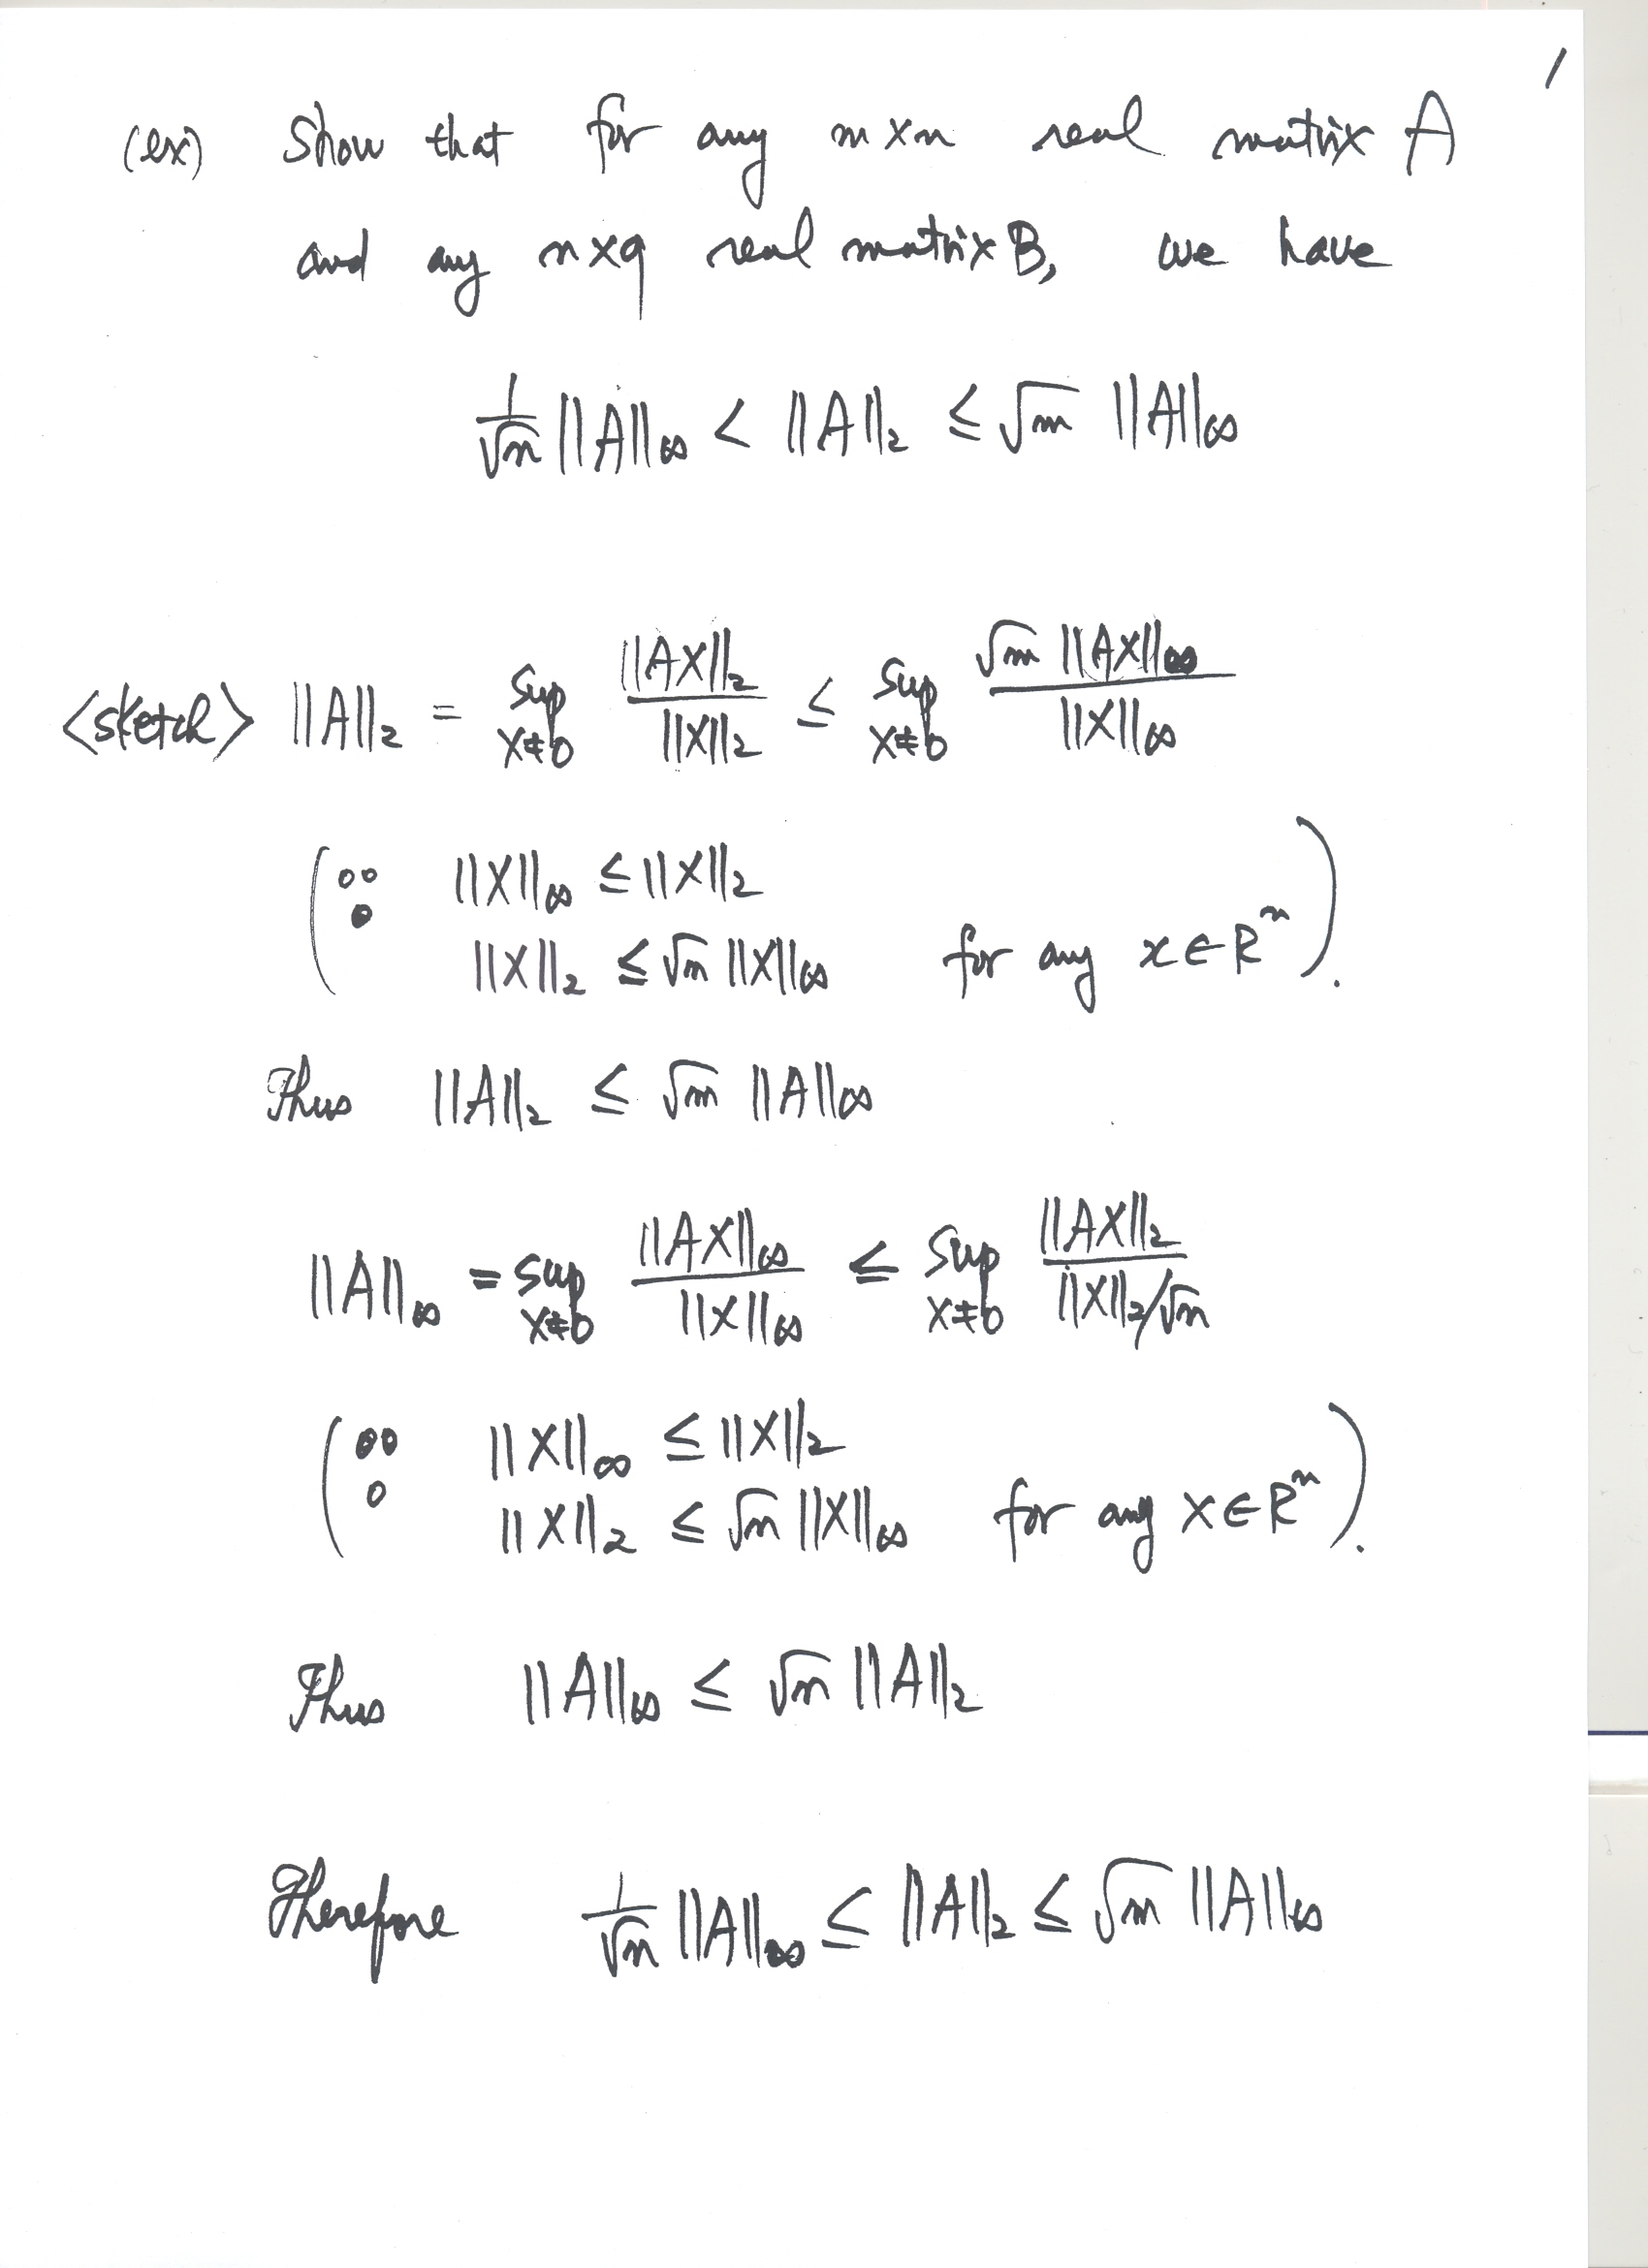 1
(ex) Show that for any m×n real matrix A
and any n×q real matrix B, we have
1/√n ||A||∞ < ||A||₂ ≤ √m ||A||∞
<sketch> ||A||₂ = sup_{X≠0} ||AX||₂ / ||X||₂ ≤ sup_{X≠0} √m ||AX||∞ / ||X||∞
( ∵ ||X||∞ ≤ ||X||₂
||X||₂ ≤ √n ||X||∞ for any x∈Rⁿ ).
Thus ||A||₂ ≤ √m ||A||∞
||A||∞ = sup_{X≠0} ||AX||∞ / ||X||∞ ≤ sup_{X≠0} ||AX||₂ / (||X||₂/√n)
( ∵ ||X||∞ ≤ ||X||₂
||X||₂ ≤ √n ||X||∞ for any X∈Rⁿ ).
Thus ||A||∞ ≤ √n ||A||₂
Therefore 1/√n ||A||∞ ≤ ||A||₂ ≤ √m ||A||∞